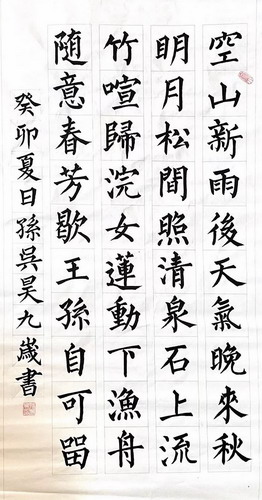 空山新雨後天氣晚來秋
明月松間照清泉石上流
竹喧歸浣女蓮動下漁舟
随意春芳歇王孫自可留
癸卯夏日孫吳昊九歲書